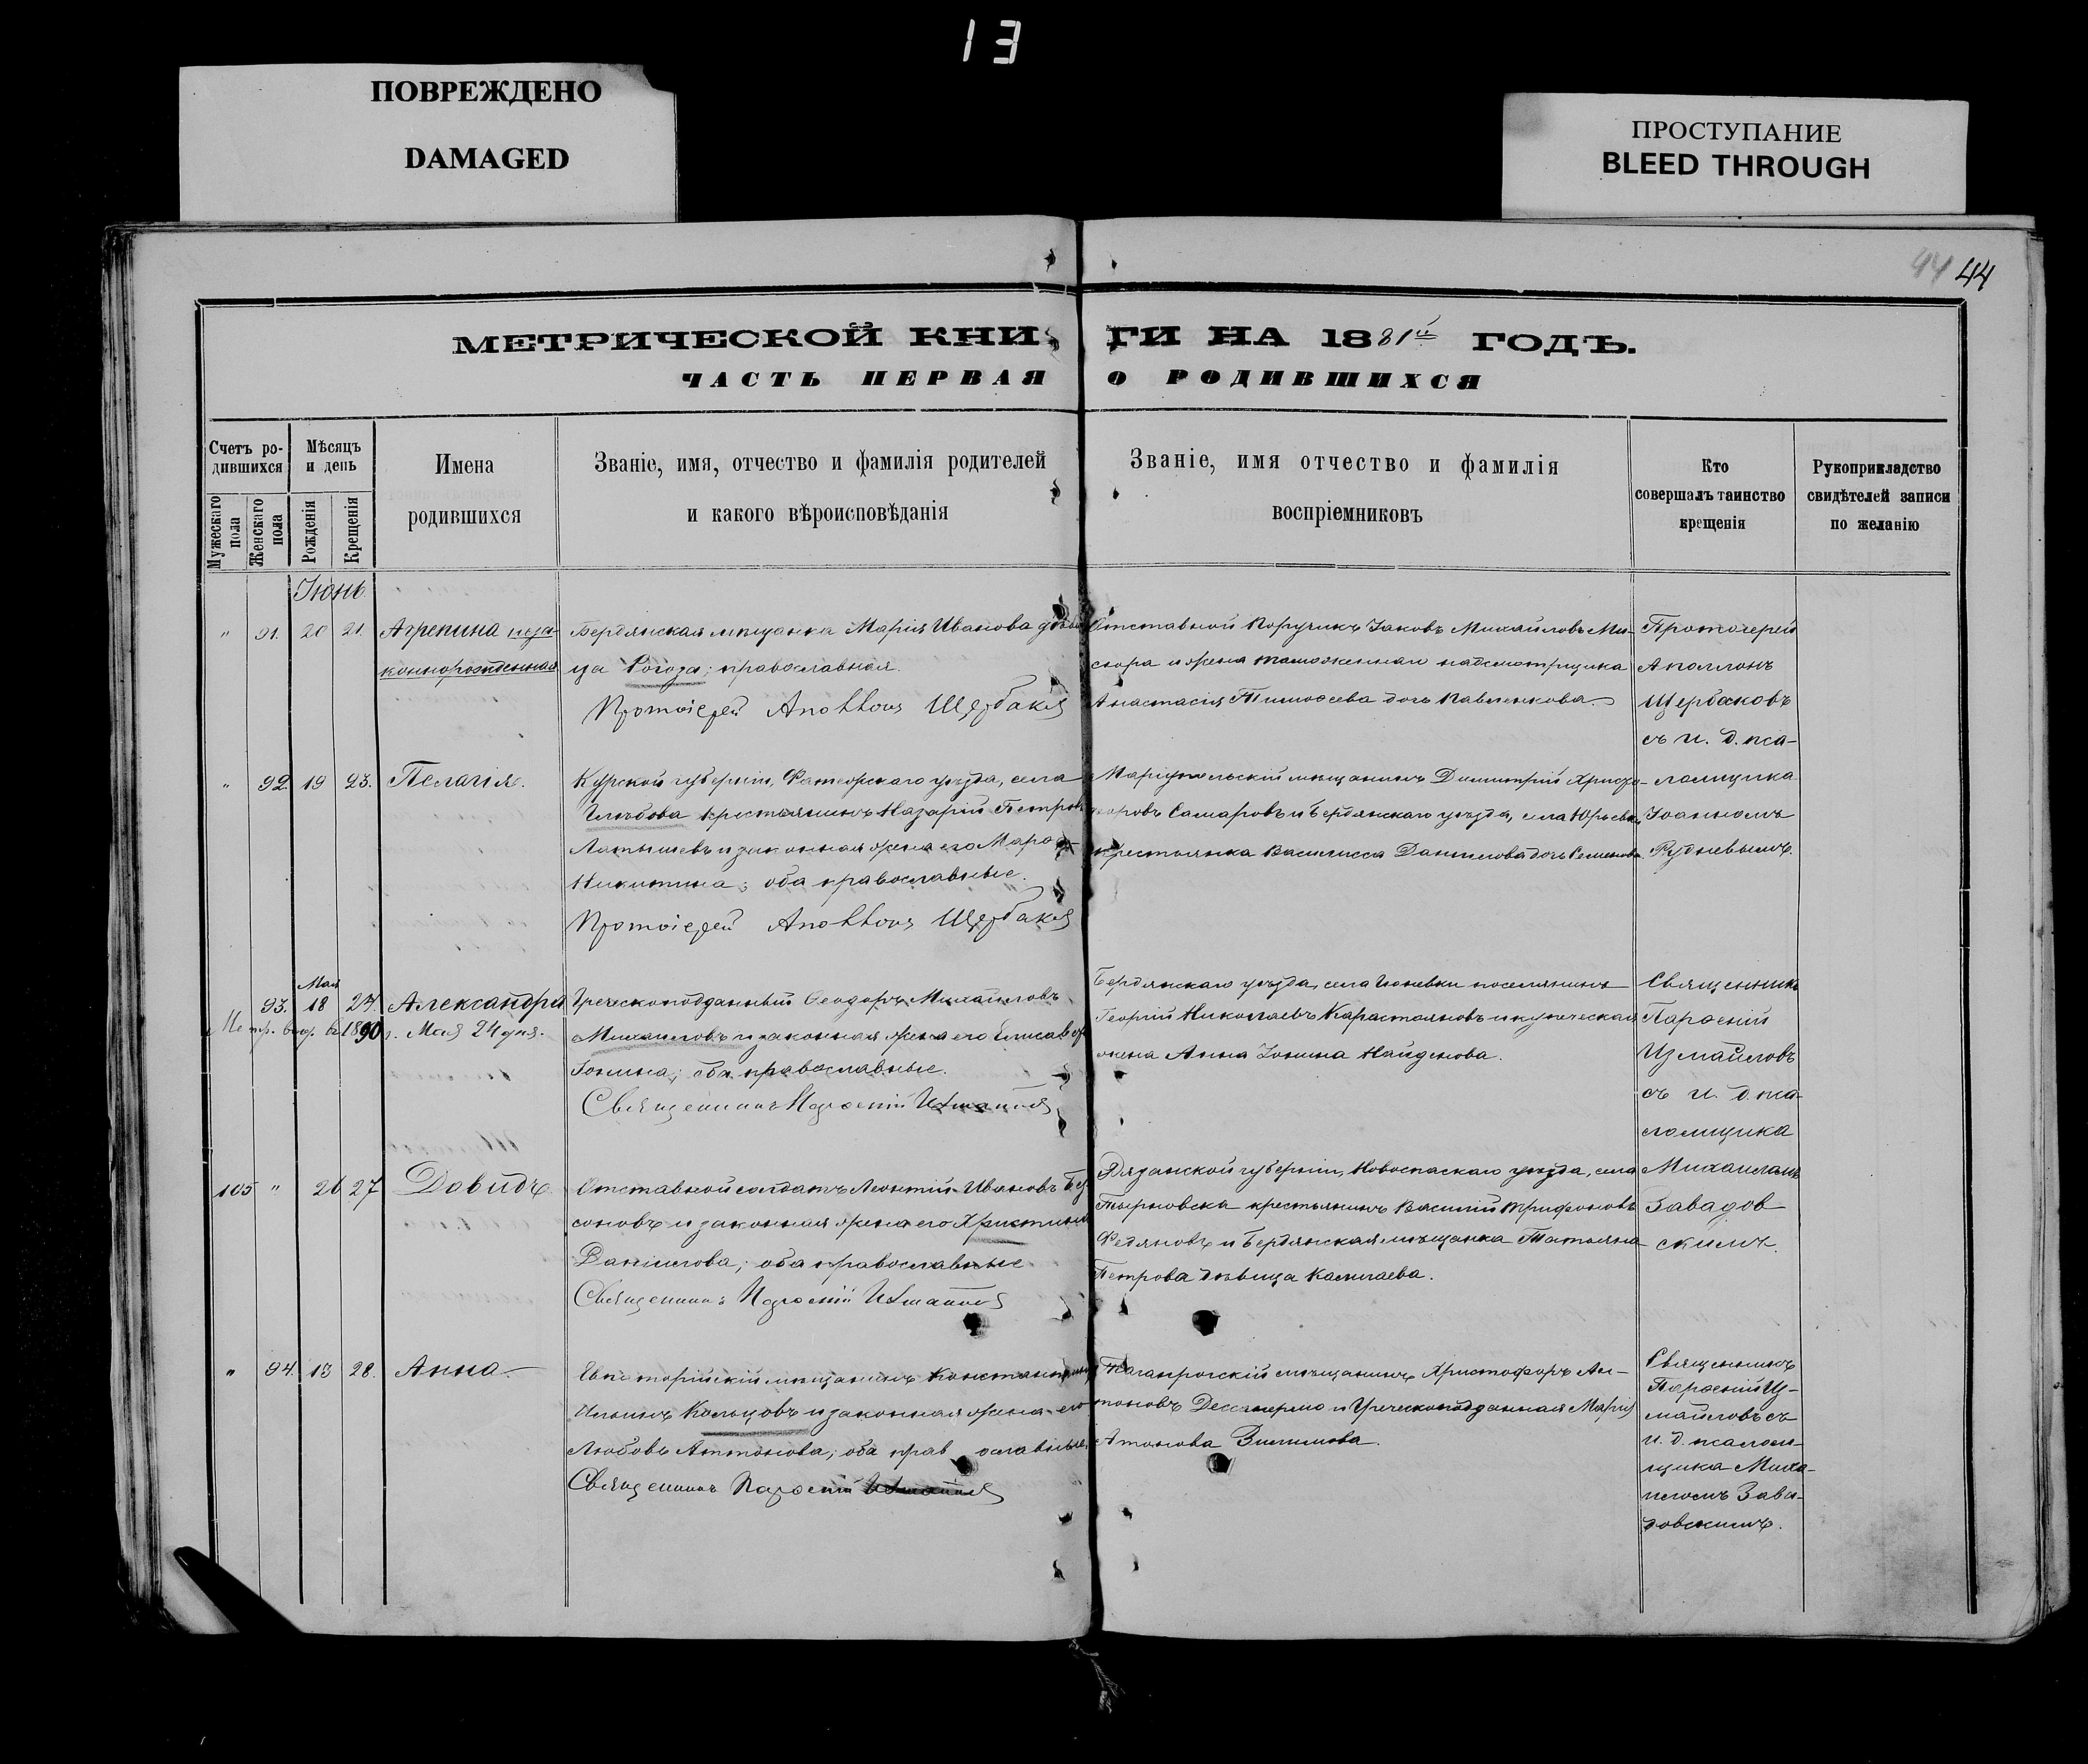 13
ПОВРЕЖДЕНО
DAMAGED
ПРОСТУПАНИЕ
BLEED THROUGH
44 44
МЕТРИЧЕСКОЙ КНИГИ НА 1881й ГОДЪ.
ЧАСТЬ ПЕРВАЯ О РОДИВШИХСЯ
Счетъ ро-
дившихся
Мужескаго пола
Женскаго пола
Мѣсяцъ
и день
Рожденія
Крещенія
Имена
родившихся
Званіе, имя, отчество и фамилія родителей
и какого вѣроисповѣданія
Званіе, имя отчество и фамилія
воспріемниковъ
Кто
совершалъ таинство
крещенія
Рукоприкладство
свидѣтелей записи
по желанію
Іюнь
" 91. 20 21.
Агрепина неза-
коннорожденная
Бердянская мѣщанка Марія Иванова дѣви-
ца Рогоза; православная.
Протоіерей Аполлонъ Щербаковъ
Отставной Поручикъ Іаковъ Михайловъ Ми-
сюра и жена таможеннаго надсмотрщика
Анастасія Тимоѳеева дочь Павленкова.
Протоіерей
Аполлонъ
Щербаковъ
съ и. д. пса-
ломщика
Іоанномъ
Рудневымъ.
" 92. 19 23.
Пелагія.
Курской губерніи, Фатежскаго уѣзда, села
Глѣбова крестьянинъ Назарій Петровъ
Латышевъ и законная жена его
Никитина; оба православные.
Протоіерей Аполлонъ Щербаковъ
Маріупольскій мѣщанинъ Димитрій Христо-
форовъ Самаровъ и Бердянскаго уѣзда, села Юрьевки
крестьянка Василисса Даниилова дочь Семенова.
Мая
93. 18 24.
Александра
Метр. выд. въ 1890 г. Мая 24 дня.
Греческоподданный Ѳеодоръ Михаиловъ
Михаиловъ и законная жена его Елисавета
Іонина; оба православные.
Священникъ Парѳеній Измайловъ
Бердянскаго уѣзда, села поселянинъ
Георгій Николаевъ Карастояновъ и купеческая
жена Анна Іонина Найденова.
Священникъ
Парѳеній
Измайловъ
съ и. д. пса-
ломщика
Михаиломъ
Завадов
скимъ.
105 " 26 27
Давидъ.
Отставной солдатъ Леонтій Ивановъ
соновъ и законная жена его Христина
Даніилова; оба православные
Священникъ Парѳеній Измайловъ
Рязанской губерніи, Новоспаскаго уѣзда, села
крестьянинъ Василій Трифоновъ
Федяновъ и Бердянская мѣщанка Татьяна
Петрова дѣвица Камчаева.
" 94. 13 28.
Анна.
Евпаторійскій мѣщанинъ Константинъ
Ильинъ Кольцовъ и законная жена его
Любовь Антонова; оба православные.
Священникъ Парѳеній Измайловъ
Таганрогскій мѣщанинъ Христофоръ Ан-
тоновъ и Греческоподданная Марія
Антонова
Священникъ
Парѳеній Из-
майловъ съ
и. д. псалом-
щика Миха-
иломъ Зава-
довскимъ.